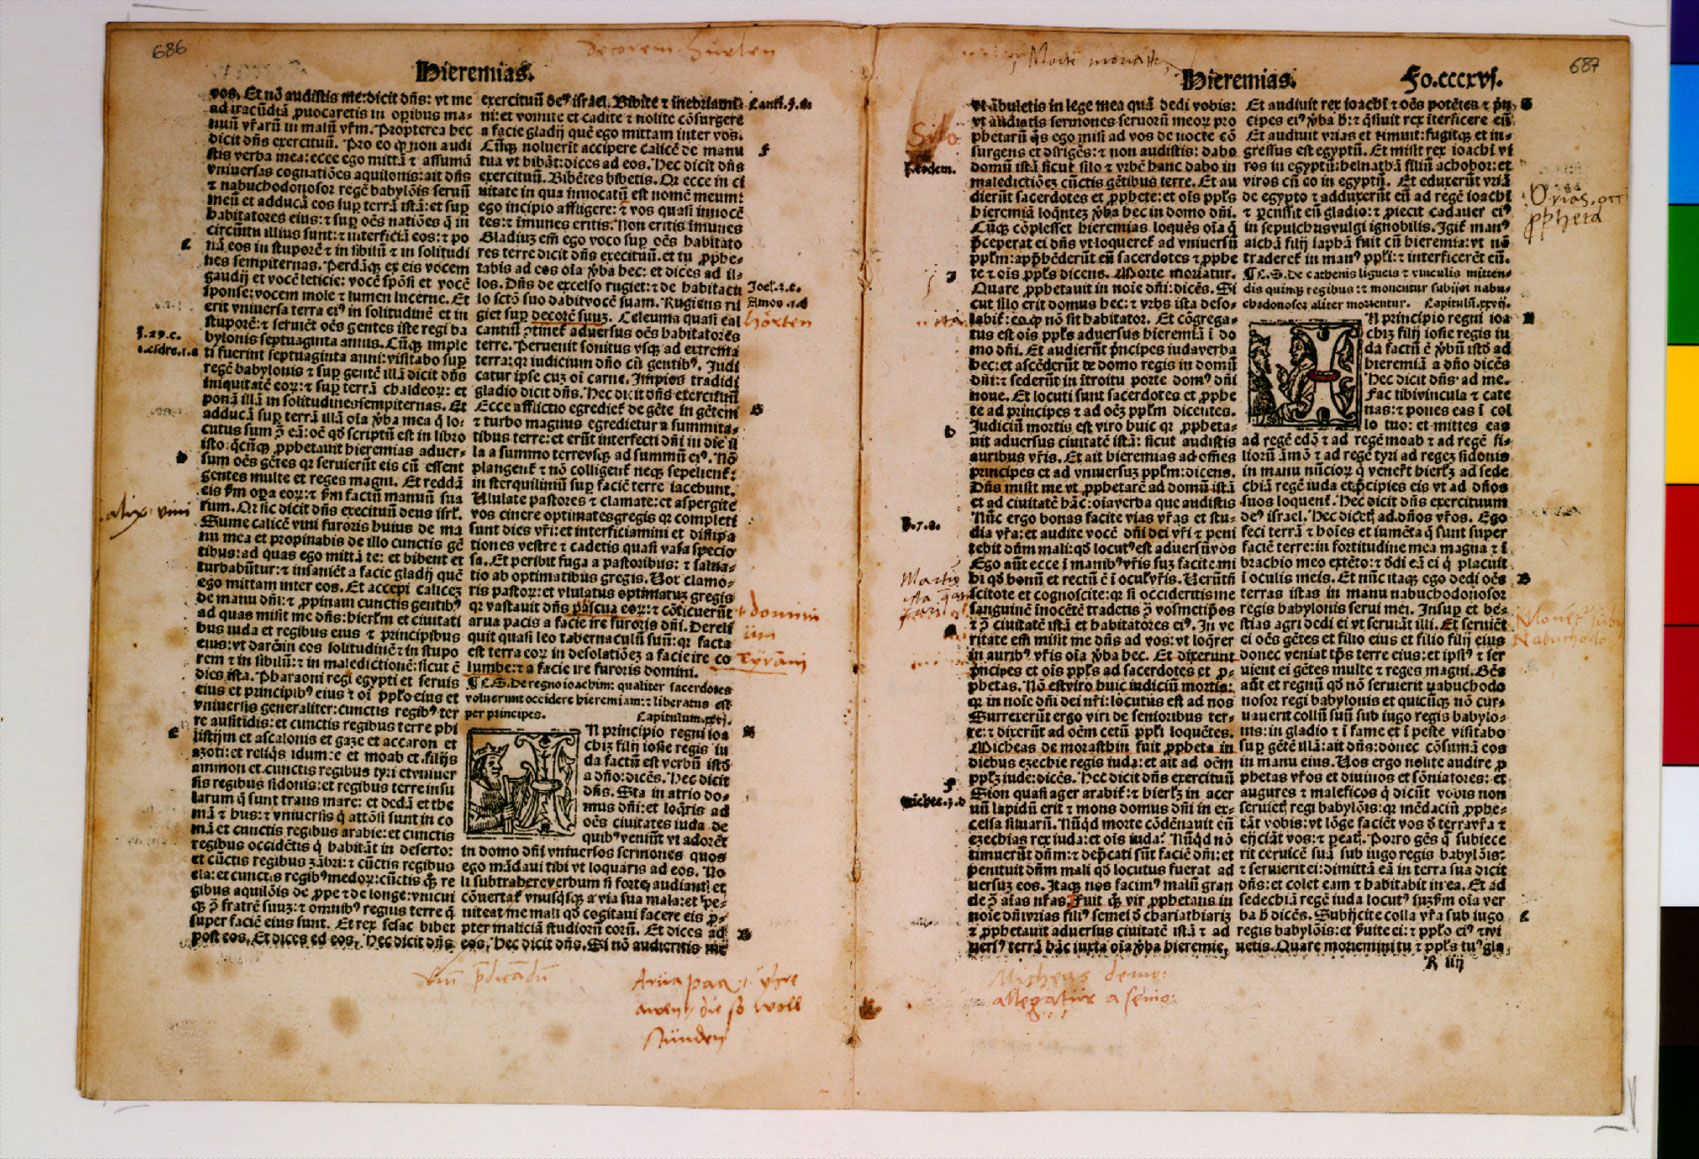 686
Hieremias.
vos. Et nō audistis me: dicit dn̄s: vt me
ad iracūdiā ꝓuocaretis in operibus ma-
dicit dn̄s exercituū. Pro eo ꝙ non audi
stis verba mea: ecce ego mittā ⁊ assumā
vniuersas cognatiōes aquilonis: ait dn̄s
⁊ nabuchodonosor regē babylōis seruū
meū et adducā eos suꝑ terrā istā: et suꝑ
habitatores eius: ⁊ suꝑ oēs natiōes q̄ in
circuitu illius sunt: ⁊ interficiā eos: ⁊ po
nā eos in stuporē ⁊ in sibilū ⁊ in solitudi
nes sempiternas. Perdāqꝫ ex eis vocem
gaudij et vocē leticie: vocē spōsi et vocē
sponse: vocem mole ⁊ lumen lucerne. Et
erit vniuersa terra eiꝰ in solitudinē et in
stuporē: ⁊ seruiēt oēs gentes iste regi ba
bylonis septuaginta annis. Cūqꝫ imple
ti fuerint septuaginta anni: visitabo suꝑ
regē babylonis ⁊ suꝑ gentē illā dicit dn̄s
iniquitatē eoꝝ: ⁊ suꝑ terrā chaldeoꝝ: et
ponā illā in solitudines sempiternas. Et
adducā suꝑ terrā illā oīa v̄ba mea q̄ lo-
cutus sum ↄ̄ eā: oē qd̄ scriptū est in libro
isto: q̄cūqꝫ ꝓphetauit hieremias aduer-
sum oēs gētes qꝛ seruierūt eis cū essent
gentes multe ⁊ reges magni. Et reddā
rum. Qꝛ sic dicit dn̄s exercituū deus isrl̄.
Sume calicē vini furoris huius de ma
nu mea et propinabis de illo cunctis gē
tibus: ad quas ego mittā te: et bibent et
turbabūtur: ⁊ insaniēt a facie gladij quē
ego mittam inter eos. Et accepi calicez
de manu dn̄i: ⁊ ꝓpinaui cunctis gentibꝰ
ad quas misit me dn̄s: hierl̄m et ciuitati
bus iuda et regibus eius ⁊ principibus
eius: vt darem eos solitudinē ⁊ in stupo
rem ⁊ in sibilū: ⁊ in maledictionē: sicut ē
dies ista. Pharaoni regi egypti et seruis
eius et principibꝰ eius ⁊ oī pplo eius et
vniuersis generaliter: cunctis regibꝰ ter
re ausitidis: et cunctis regibus terre phi
listijm et ascalonis et gaze et accaron et
ammon et cunctis regibus tyri et vniuer
sis regibus sidonis: et regibus terre insu
larum q̄ sunt trans mare: et dedā et the
mā et cunctis regibus arabie: et cunctis
regibus occidētis q̄ habitāt in deserto:
et cūctis regibus zābri: ⁊ cūctis regibus
super faciē eius sunt. Et rex sesac bibet
post eos. Et dices ad eos. Hec dicit dn̄s
exercituū deꝰ israel. Bibite ⁊ inebriami
ni: et vomite et cadite ⁊ nolite cōsurgere
a facie gladij quē ego mittam inter vos.
Cūqꝫ noluerit accipere calicē de manu
tua vt bibāt: dices ad eos. Hec dicit dn̄s
exercituū. Bibētes bibetis. Qꝛ ecce in ci
uitate in qua inuocatū est nomē meum:
ego incipio affligere: ⁊ vos quasi innocē
tes: ⁊ īmunes eritis. Non eritis īmunes
Gladiuꝫ em̄ ego voco suꝑ oēs habitato
res terre dicit dn̄s exercituū. et tu ꝓphe-
tabis ad eos oīa v̄ba hec: et dices ad il-
los. Dn̄s de excelso rugiet: ⁊ de habitacu
lo sctō suo dabit vocē suam. Rugiens ru
giet suꝑ decorē suuꝫ. Celeuma quasi cal
cantiū ↄtinet̄ aduersus oēs habitatores
terre. Peruenit sonitus vsqꝫ ad extrema
terra: qꝛ iudicium dn̄o cū gentibꝰ. Judi
catur ipse cuꝫ oī carne. Impios tradidi
gladio dicit dn̄s. Hec dicit dn̄s exercituū
Ecce afflictio egredieť de gēte in gētem
⁊ turbo magnus egredietur a summita-
tibus terre: et erūt interfecti dn̄i in die il
la a summo terre vsqꝫ ad summū eiꝰ. Nō
plangenť ⁊ nō colligenť neqꝫ sepelienť:
in sterquiliniū suꝑ faciē terre iacebunt.
Ululate pastores ⁊ clamate: et aspergite
vos cinere optimates gregis qꝛ completi
sunt dies vr̄i: et interficiamini et dissipa
tiones vestre ⁊ cadetis quasi vasa specio
sa. Et peribit fuga a pastoribus: ⁊ salua-
tio ab optimatibus gregis. Vox clamo-
ris pastoꝝ: et vlulatus optimatuꝫ gregis
qꝛ vastauit dn̄s pascua eoꝝ: ⁊ cōticuerūt
arua pacis a facie ire furoris dn̄i. Dereli
quit quasi leo tabernaculū suū: qꝛ facta
est terra eoꝝ in desolatiōeꝫ a facie ire co
lumbe: ⁊ a facie ire furoris domini.
¶ C.S. De regno ioachim: qualiter sacerdotes
voluerunt occidere hieremiam: ⁊ liberatus est
per principes. Capitulum.xxvj.
N principio regni ioa
chiꝫ filij iosie regis iu
da factū est verbū istō
a dn̄o: dicēs. Hec dicit
dn̄s. Sta in atrio do-
mus dn̄i: et loq̄ris ad
oēs ciuitates iuda de
quibꝰ veniūt vt adorēt
in domo dn̄i vniuersos sermones quos
ego mādaui tibi vt loquaris ad eos. No
li subtrahere verbum si forte audiant: et
cōuertať vnusq̄sqꝫ a via sua mala: et pe-
niteat me mali qd̄ cogitaui facere eis ꝓ-
pter maliciā studiorū eorū. Et dices ad
eos. Hec dicit dn̄s. Si nō audieritis me
Joel.3.c.
hörten
domini
Tyranj
Arua pac
687
Hieremias. Fo.cccxvj.
vt ābuletis in lege mea quā dedi vobis:
vt audiatis sermones seruorū meoꝝ pro
phetarū q̄s ego misi ad vos de nocte cō
surgens et dirigēs: ⁊ non audistis: dabo
domū istā sicut silo ⁊ vrbē hanc dabo in
maledictiōeꝫ cūctis gētibus terre. Et au
dierūt sacerdotes et ꝓphete: et oīs ppl̄s
hieremiā loq̄ntez v̄ba hec in domo dn̄i.
Cūqꝫ cōplesset hieremias loquēs oīa q̄
p̄ceperat ei dn̄s vt loquereť ad vniuersū
pplm̄: apphēderūt eū sacerdotes ⁊ ꝓphe
te ⁊ oīs ppl̄s dicens. Morte moriatur.
Quare ꝓphetauit in noīe dn̄i: dicēs. Si
cut silo erit domus hec: ⁊ vrbs ista deso-
labiť: eo ꝙ nō sit habitator. Et cōgrega-
tus est oīs ppl̄s aduersus hieremiā ī do
mo dn̄i. Et audierūt pricipes iuda verba
hec: et ascēderūt de domo regis in domū
dn̄i: ⁊ sederūt in ītroitu porte domꝰ dn̄i
noue. Et locuti sunt sacerdotes et ꝓphe
te ad principes ⁊ ad oēs pplm̄ dicentes.
Judiciū mortis est viro huic qꝛ ꝓpheta-
uit aduersus ciuitatē istā: sicut audistis
auribus vr̄is. Et ait hieremias ad omnes
principes et ad vniuersuꝫ pplm̄: dicens.
Dn̄s misit me vt ꝓphetarē ad domū istā
et ad ciuitatē hāc: oīa verba que audistis
Nūc ergo bonas facite vias vr̄as et stu-
dia vr̄a: et audite vocē dn̄i dei vr̄i ⁊ peni
tebit dn̄m mali: qd̄ locutꝰ est aduersū vos
Ego aūt ecce ī manibꝰ vr̄is suꝫ facite mi
hi qd̄ bonū et rectū ē ī ocul̄ vr̄is. Verūtn̄
scitote et cognoscite: qꝛ si occideritis me
sanguinē inocētē tradetis ↄ̄ vosmetip̄os
⁊ ↄ̄ ciuitatē istā et habitatores eiꝰ. In ve
ritate em̄ misit me dn̄s ad vos: vt loq̄rer
in auribꝰ vr̄is oīa v̄ba hec. Et dixerunt
pricipes et oīs ppl̄s ad sacerdotes et ꝓ-
phetas. Nō est viro huic iudiciū mortis:
qꝛ in noīe dn̄i dei nr̄i: locutus est ad nos
Surrexerūt ergo viri de senioribus ter-
re: ⁊ dixerūt ad oēm cetū ppl̄i loquētes.
Micheas de morasthin fuit ꝓpheta in
diebus ezechie regis iuda: et ait ad oēm
pplꝫ iude: dicēs. Hec dicit dn̄s exercituū
Sion quasi ager arabiť: ⁊ hierl̄ꝫ in acer
uū lapidū erit ⁊ mons domus dn̄i in ex-
celsa siluarū. Nūqd̄ morte cōdēnauit eū
ezechias rex iuda: et oīs iuda: Nūqd̄ nō
timuerūt dn̄m: ⁊ dep̄cati sūt faciē dn̄i: et
penituit dn̄m mali qd̄ locutus fuerat ad
uersuꝫ eos. Itaqꝫ nos facimꝰ malū gran
de ↄ̄ aīas nr̄as. Fuit qꝫ vir ꝓphetans in
noīe dn̄i vrias filiꝰ semei d̄ chariathiariꝫ
⁊ ꝓphetauit aduersus ciuitatē istā ⁊ ad
uersꝰ terrā hāc iuxta oīa v̄ba hieremie.
Et audiuit rex ioachī ⁊ oēs potētes ⁊ p̄n
cipes eiꝰ v̄ba h̄: ⁊ q̄siuit rex īterficere eū
Et audiuit vrias et timuit: fugitqꝫ et in-
gressus est egyptū. Et misit rex ioachī vi
ros in egyptū: helnathā filiū achobor: et
viros cū eo in egyptū. Et eduxerūt vriā
de egypto ⁊ adduxerūt eū ad regē ioachī
⁊ ꝑcussit eū gladio: ⁊ ꝓiecit cadauer eiꝰ
in sepulchris vulgi ignobilis. Igiť manꝰ
aichā filij saphā fuit cū hieremia: vt nō
tradereť in manꝰ ppl̄i: ⁊ interficerēt eū.
¶ C.S. De cathenis ligneis ⁊ vinculis mitten-
dis quinqꝫ regibus: ⁊ mouentur subijci nabu-
chodonosor aliter morientur. Capitulū.xxvij.
N principio regni ioa
chiꝫ filij iosie regis iu
da factū ē v̄bū istō ad
hieremiā a dn̄o dicēs
Hec dicit dn̄s ad me.
Fac tibi vincula ⁊ cate
nas: ⁊ pones eas ī col
lo tuo: et mittes eas
ad regē edō ⁊ ad regē moab ⁊ ad regē fi-
liorū āmō ⁊ ad regē tyri ad regeꝫ sidonis
in manu nūcioꝝ q̄ venerť hierl̄ꝫ ad sede
chiā regē iuda et p̄cipies eis vt ad dn̄os
suos loquenť. Hec dicit dn̄s exercituum
deꝰ israel. Hec dicetꝭ ad dn̄os vr̄os. Ego
feci terrā ⁊ hoīes et iumēta q̄ sunt super
faciē terre: in fortitudine mea magna ⁊ ī
brachio meo extēto: ⁊ dedi eā ei q̄ placuit
ī oculis meis. Et nūc itaqꝫ ego dedi oēs
terras istas in manu nabuchodonosor
regis babylonis serui mei. Insuꝑ et be-
stias agri dedi ei vt seruiāt illi. Et seruiēt
ei oēs gētes et filio eius et filio filij eius
donec veniat tp̄s terre eius: et ipsiꝰ ⁊ ser
uient ei gētes multe ⁊ reges magni. Gēs
aūt et regnū qd̄ nō seruierit nabuchodo
nosor regi babylonis et quicūqꝫ nō cur-
uauerit collū suū sub iugo regis babylo-
nis: in gladio ⁊ ī fame et ī peste visitabo
suꝑ gētē illā: ait dn̄s: donec cōsumā eos
in manu eius. Vos ergo nolite audire ꝓ
phetas vr̄os et diuinos et sōniatores: et
augures ⁊ maleficos q̄ dicūt vobis non
seruietꝭ regi babylōis: qꝛ mēdaciū ꝓphe-
tāt vobis: vt lōge faciēt vos d̄ terra vr̄a ⁊
eijciāt vos: ⁊ peatꝭ. Porro gēs q̄ subiece
rit ceruicē suā sub iugo regis babylōis:
⁊ seruierit ei: dimittā eā in terra sua dicit
dn̄s: et colet eam ⁊ habitabit in ea. Et ad
sedechiā regē iuda locutꝰ suꝫ fm̄ oīa ver
ba h̄ dicēs. Subijcite colla vr̄a sub iugo
regis babylōis: et s̄uite ei: ⁊ pplo eiꝰ ⁊ vi
uetis. Quare moriemini tu ⁊ ppl̄s tuꝰ gla
R iiij
Silo
Morte moriatur
Micheas
allegatur a